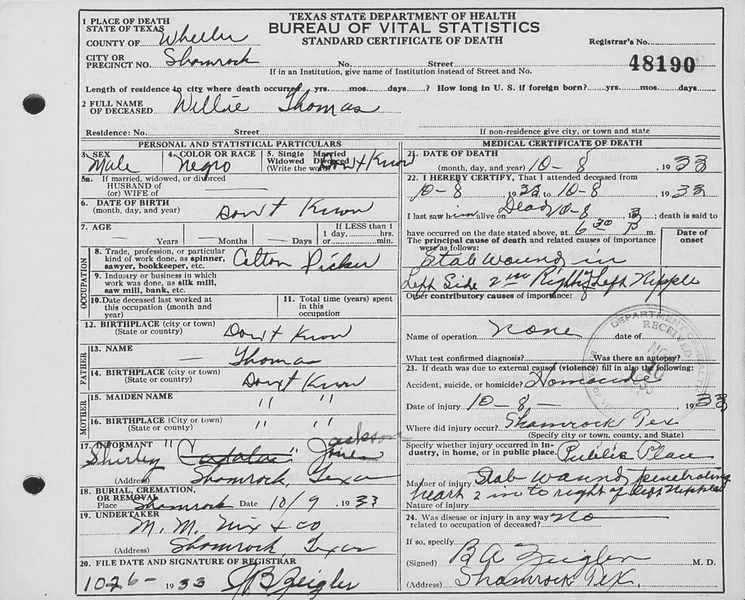 TEXAS STATE DEPARTMENT OF HEALTH
BUREAU OF VITAL STATISTICS
STANDARD CERTIFICATE OF DEATH
1 PLACE OF DEATH
STATE OF TEXAS
COUNTY OF Wheeler
CITY OR
PRECINCT NO. Shamrock No. Street
Registrar's No.
48190
If in an Institution, give name of Institution instead of Street and No.
Length of residence in city where death occurred yrs. mos. days? How long in U. S. if foreign born? yrs. mos. days
2 FULL NAME
OF DECEASED Willie Thomas
Residence: No. Street If non-residence give city, or town and state
PERSONAL AND STATISTICAL PARTICULARS
3. SEX Male
4. COLOR OR RACE Negro
5. Single Married
Widowed Divorced
(Write the word) Don't Know
5a. If married, widowed, or divorced
HUSBAND of
(or) WIFE of
6. DATE OF BIRTH
(month, day, and year) Don't Know
7. AGE
Years Months Days
If LESS than 1
1 day, hrs.
or min.
OCCUPATION
8. Trade, profession, or particular
kind of work done, as spinner,
sawyer, bookkeeper, etc. Cotton Picker
9. Industry or business in which
work was done, as silk mill,
saw mill, bank, etc.
10. Date deceased last worked at
this occupation (month and
year)
11. Total time (years) spent
in this
occupation
12. BIRTHPLACE (city or town)
(State or country) Don't Know
FATHER
13. NAME — Thomas
14. BIRTHPLACE (city or town)
(State or country) Don't Know
MOTHER
15. MAIDEN NAME " "
16. BIRTHPLACE (city or town)
(State or country) " "
17. INFORMANT " Jackson
Shirley " Jones
(Address) Shamrock, Texas
18. BURIAL, CREMATION,
OR REMOVAL
Place Shamrock Date 10/9, 1933
19. UNDERTAKER
M. M. Nix & Co
(Address) Shamrock, Texas
20. FILE DATE AND SIGNATURE OF REGISTRAR
10-26- 1933 JB Zeigler
MEDICAL CERTIFICATE OF DEATH
21. DATE OF DEATH
(month, day, and year) 10-8 , 1933
22. I HEREBY CERTIFY, That I attended deceased from
10-8 1933, to 10-8 , 1933
I last saw him alive on Dead 10-8 33; death is said to
have occurred on the date stated above, at 6 30 P m.
The principal cause of death and related causes of importance
were as follows:
Date of
onset
Stab wound in
Left Side 2 in Right of Left Nipple
Other contributory causes of importance:
Name of operation None date of
What test confirmed diagnosis? Was there an autopsy?
23. If death was due to external causes (violence) fill in also the following:
Accident, suicide, or homicide? Homocide
Date of injury 10-8- , 1933
Where did injury occur? Shamrock Tex
(Specify city or town, county, and State)
Specify whether injury occurred in In-
dustry, in home, or in public place. Public Place
Manner of injury Stab wound penetrating
heart 2 in to right of left nipple
Nature of injury
24. Was disease or injury in any way
related to occupation of deceased? No
If so, specify
(Signed) B A Zeigler M. D.
(Address) Shamrock Tex.
DEPARTMENT
RECEIVED